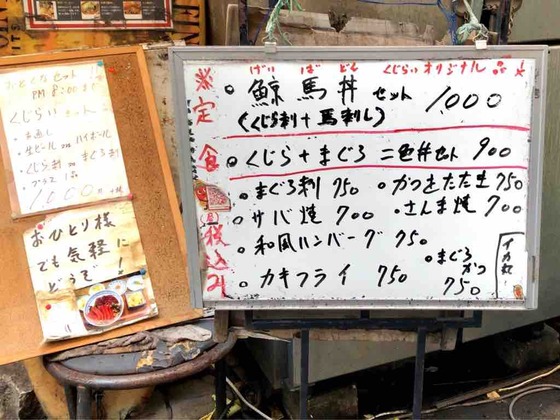 おとくなセット
PM 8:00
くじらいセット
お通し
生ビール or ハイボール
くじら刺 or まぐろ刺
プラス 1品
1000
おひとり様
でも気軽に
どうぞ!
げい ば どん くじらいオリジナル
定食
税込み
鯨馬丼 セット 1,000
(くじら刺+馬刺し)
くじら+まぐろ 二色丼セット 900
まぐろ刺 750
かつをたたき 750
サバ焼 700
さんま焼 700
和風ハンバーグ 750
まぐろ
かつ
750
カキフライ 750